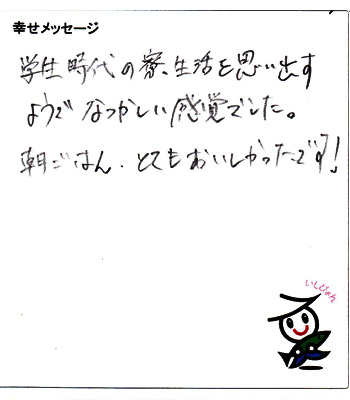 幸せメッセージ
学生時代の寮生活を思い出す
ようでなつかしい感覚でした。
朝ごはん、とてもおいしかったです!
いしぴょん